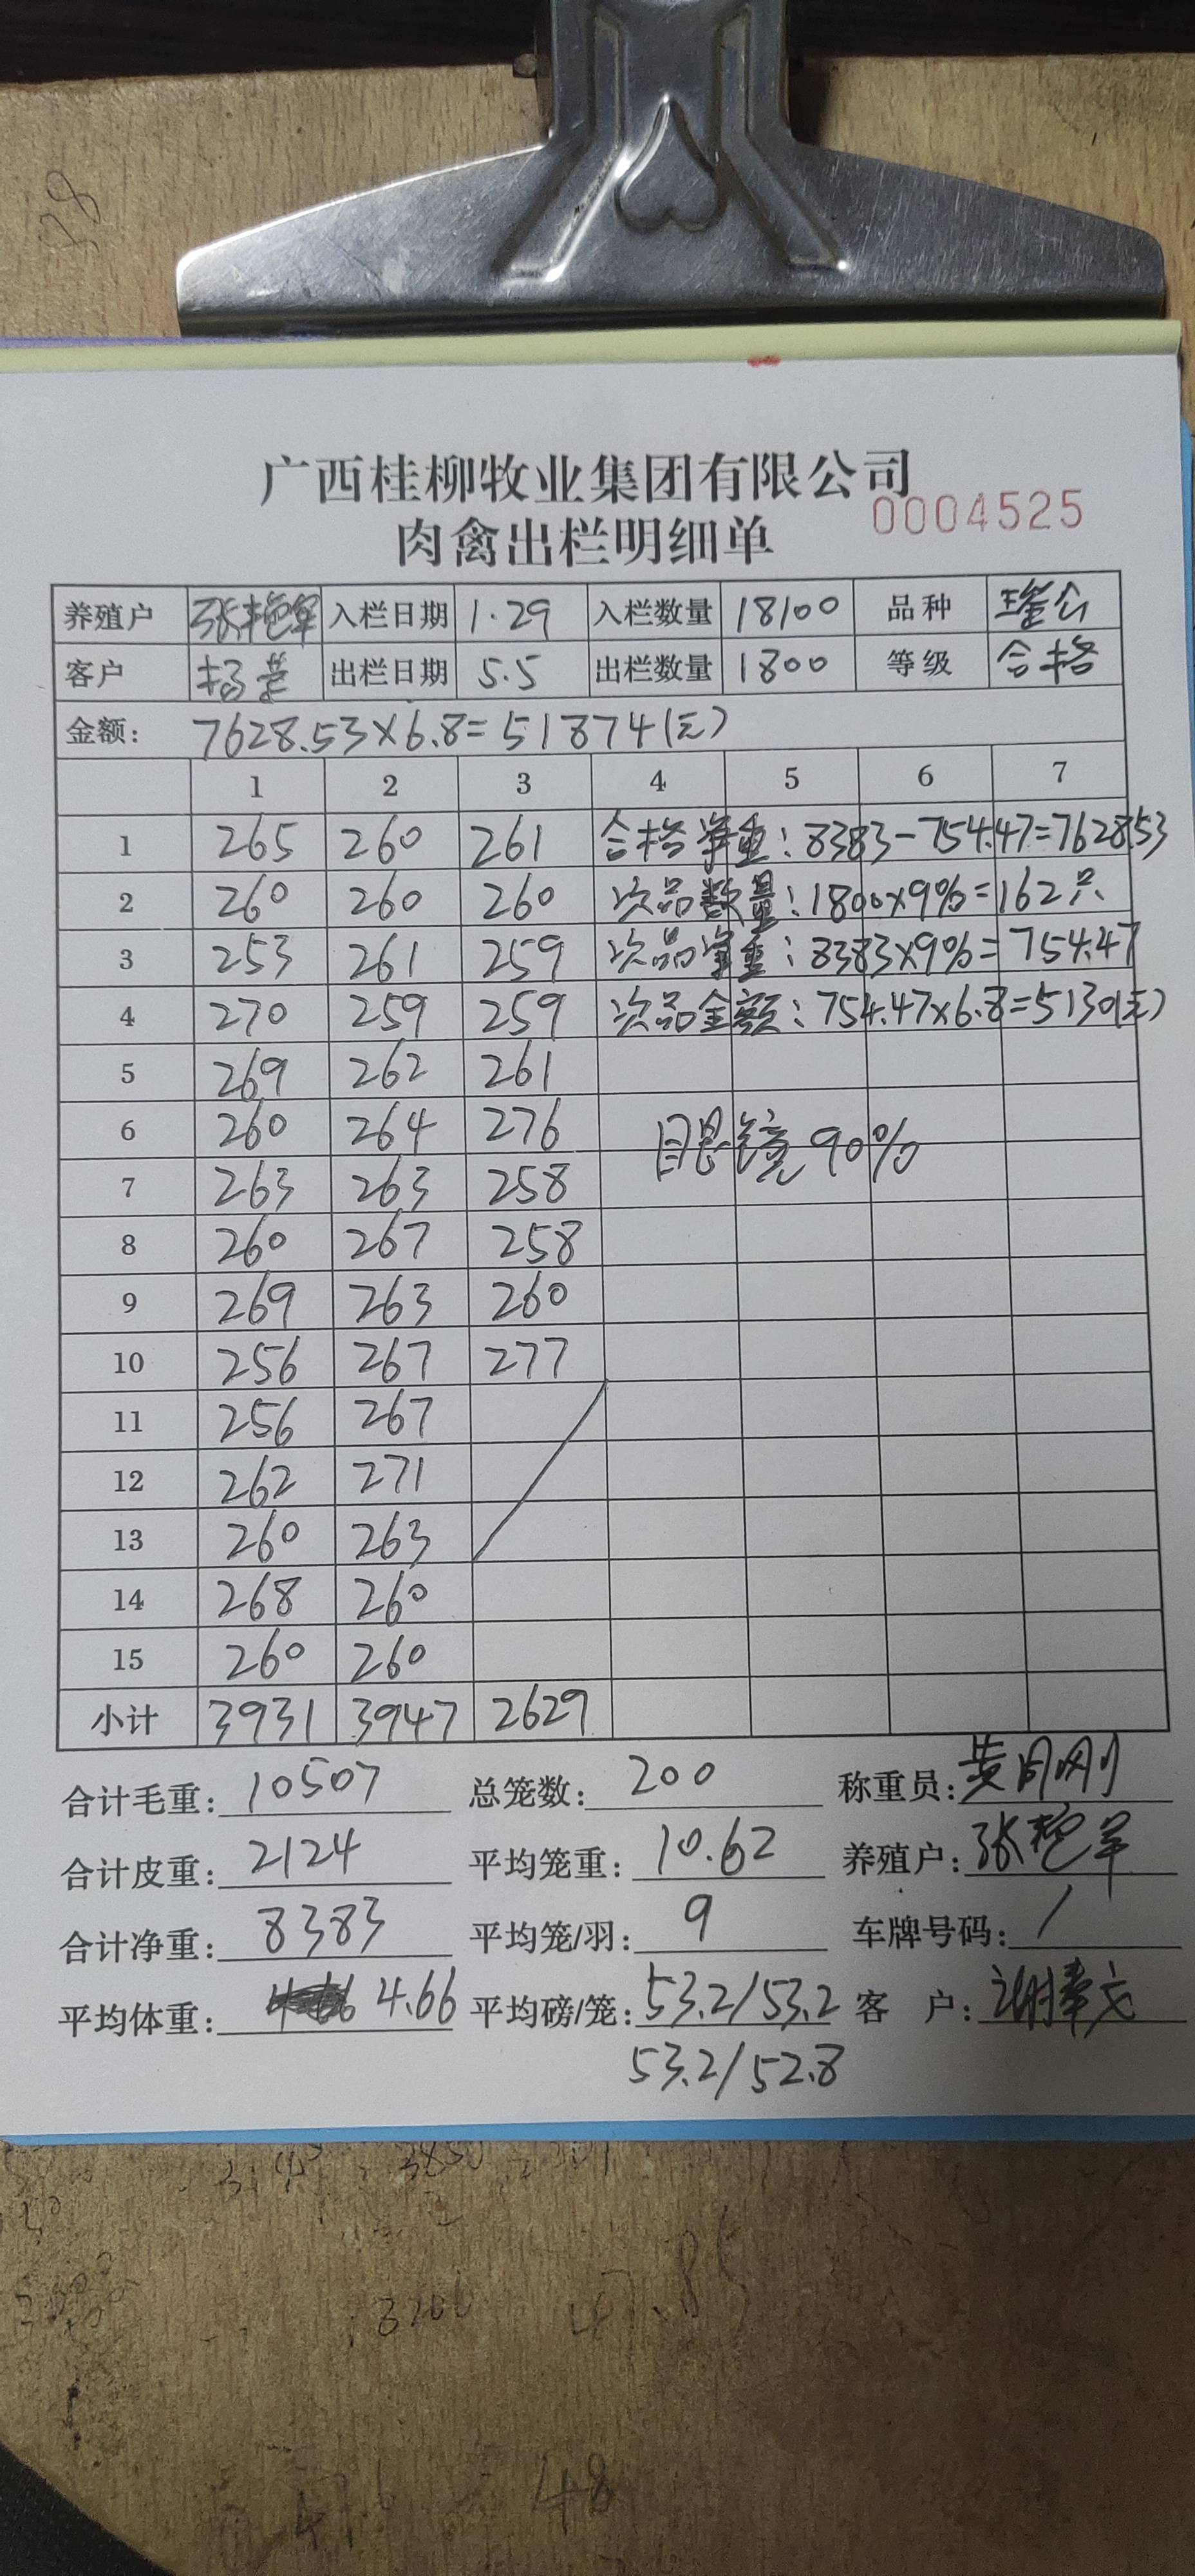 28
广西桂柳牧业集团有限公司
肉禽出栏明细单 0004525
养殖户 张艳军 入栏日期 1.29 入栏数量 18100 品种 瑶公
客户 杨 出栏日期 5.5 出栏数量 1800 等级 合格
金额: 7628.53×6.8=51874(元)
1 2 3 4 5 6 7
1 265 260 261 合格净重:8383-754.47=7628.53
2 260 260 260 次品数量:1800×9%=162只
3 253 261 259 次品净重:8383×9%=754.47
4 270 259 259 次品金额:754.47×6.8=5130(元)
5 269 262 261
6 260 264 276 眼镜90%
7 263 263 258
8 260 267 258
9 269 263 260
10 256 267 277
11 256 267
12 262 271
13 260 263
14 268 260
15 260 260
小计 3931 3947 2629
合计毛重: 10507 总笼数: 200 称重员: 黄月刚
合计皮重: 2124 平均笼重: 10.62 养殖户: 张艳军
合计净重: 8383 平均笼/羽: 9 车牌号码: /
平均体重: 4.66 平均磅/笼: 53.2/53.2 客 户: 谢
53.2/52.8
48